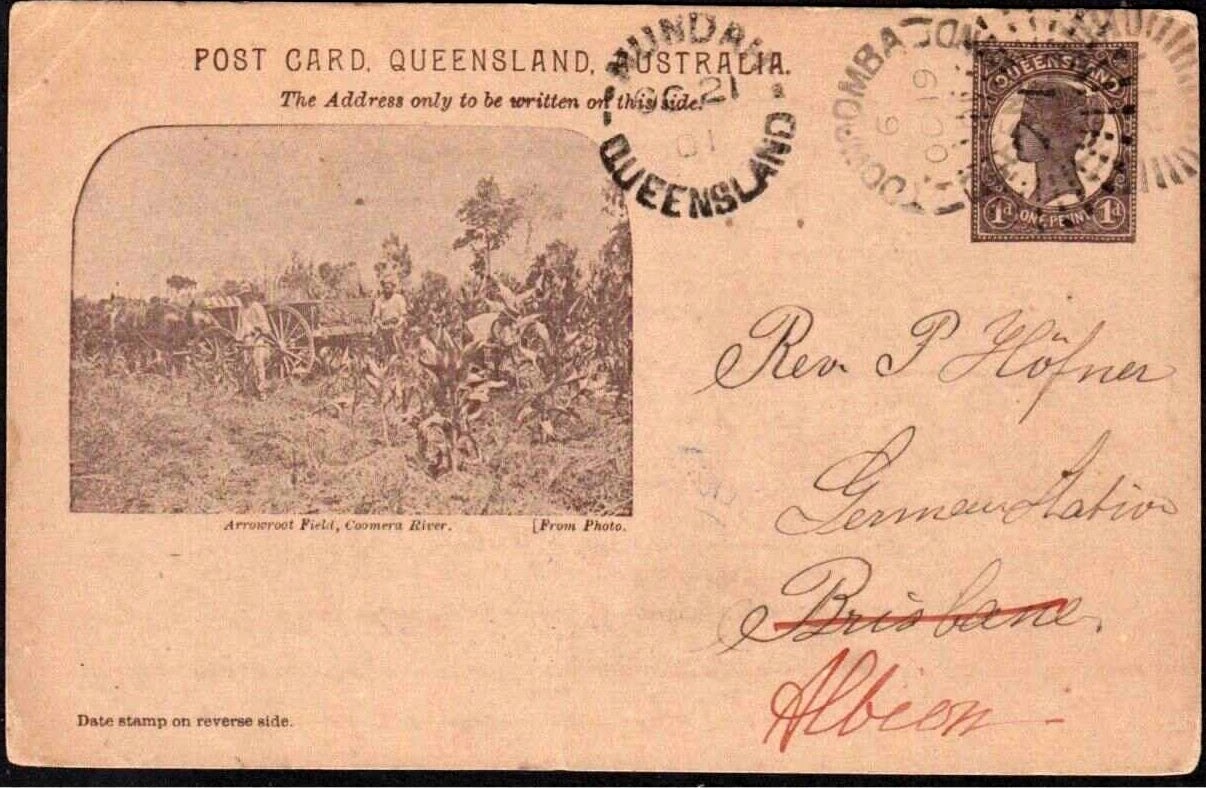 POST CARD, QUEENSLAND, AUSTRALIA.
The Address only to be written on this side.
NUNDAH
OC 21
01
QUEENSLAND
TOOWOOMBA
QUEENSLAND
1d ONE PENNY 1d
Rev. P Höfner
German Station
Brisbane.
Albion
Arrowroot Field, Coomera River. [From Photo.
Date stamp on reverse side.